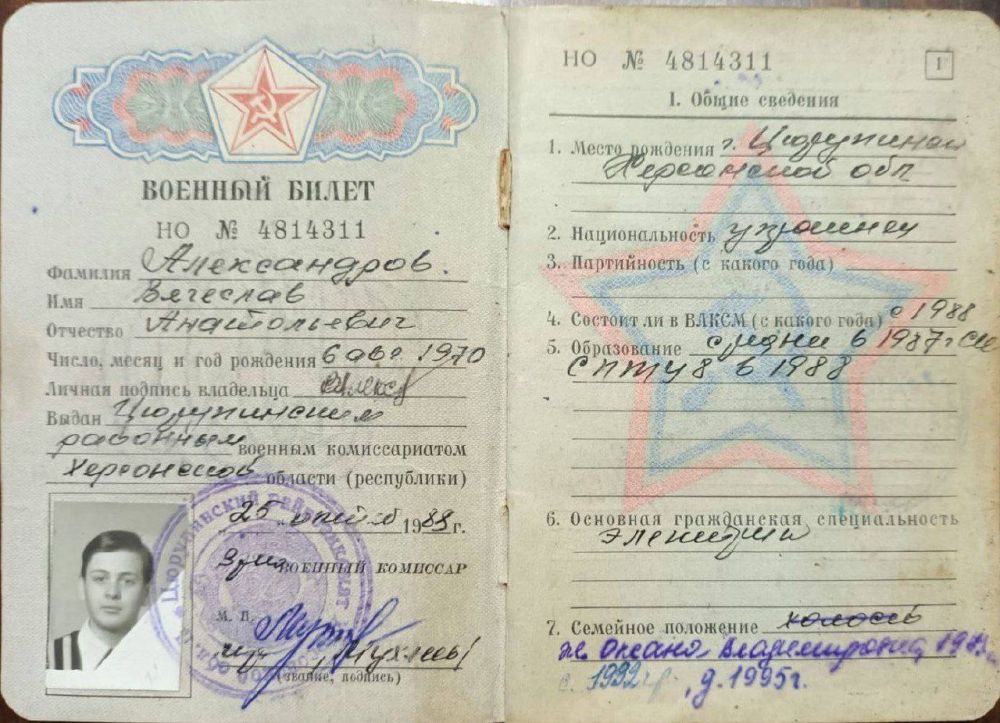 ВОЕННЫЙ БИЛЕТ
НО № 4814311
Фамилия Александров
Имя Вячеслав
Отчество Анатольевич
Число, месяц и год рождения 6 авг. 1970
Личная подпись владельца
Выдан Цюрупинским
районным военным комиссариатом
Херсонской области (республики)
25 октяб 1988 г.
Врио ВОЕННЫЙ КОМИССАР
М. П.
(звание, подпись)
НО № 4814311
1
I. Общие сведения
1. Место рождения г. Цюрупинск
Херсонской обл
2. Национальность украинец
3. Партийность (с какого года)
4. Состоит ли в ВЛКСМ (с какого года) с 1988
5. Образование средн в 1987 г
СПТУ 8 в 1988
6. Основная гражданская специальность
7. Семейное положение холост
ж. Оксана Владимировна
с. 1992 г.р., д. 1995 г.